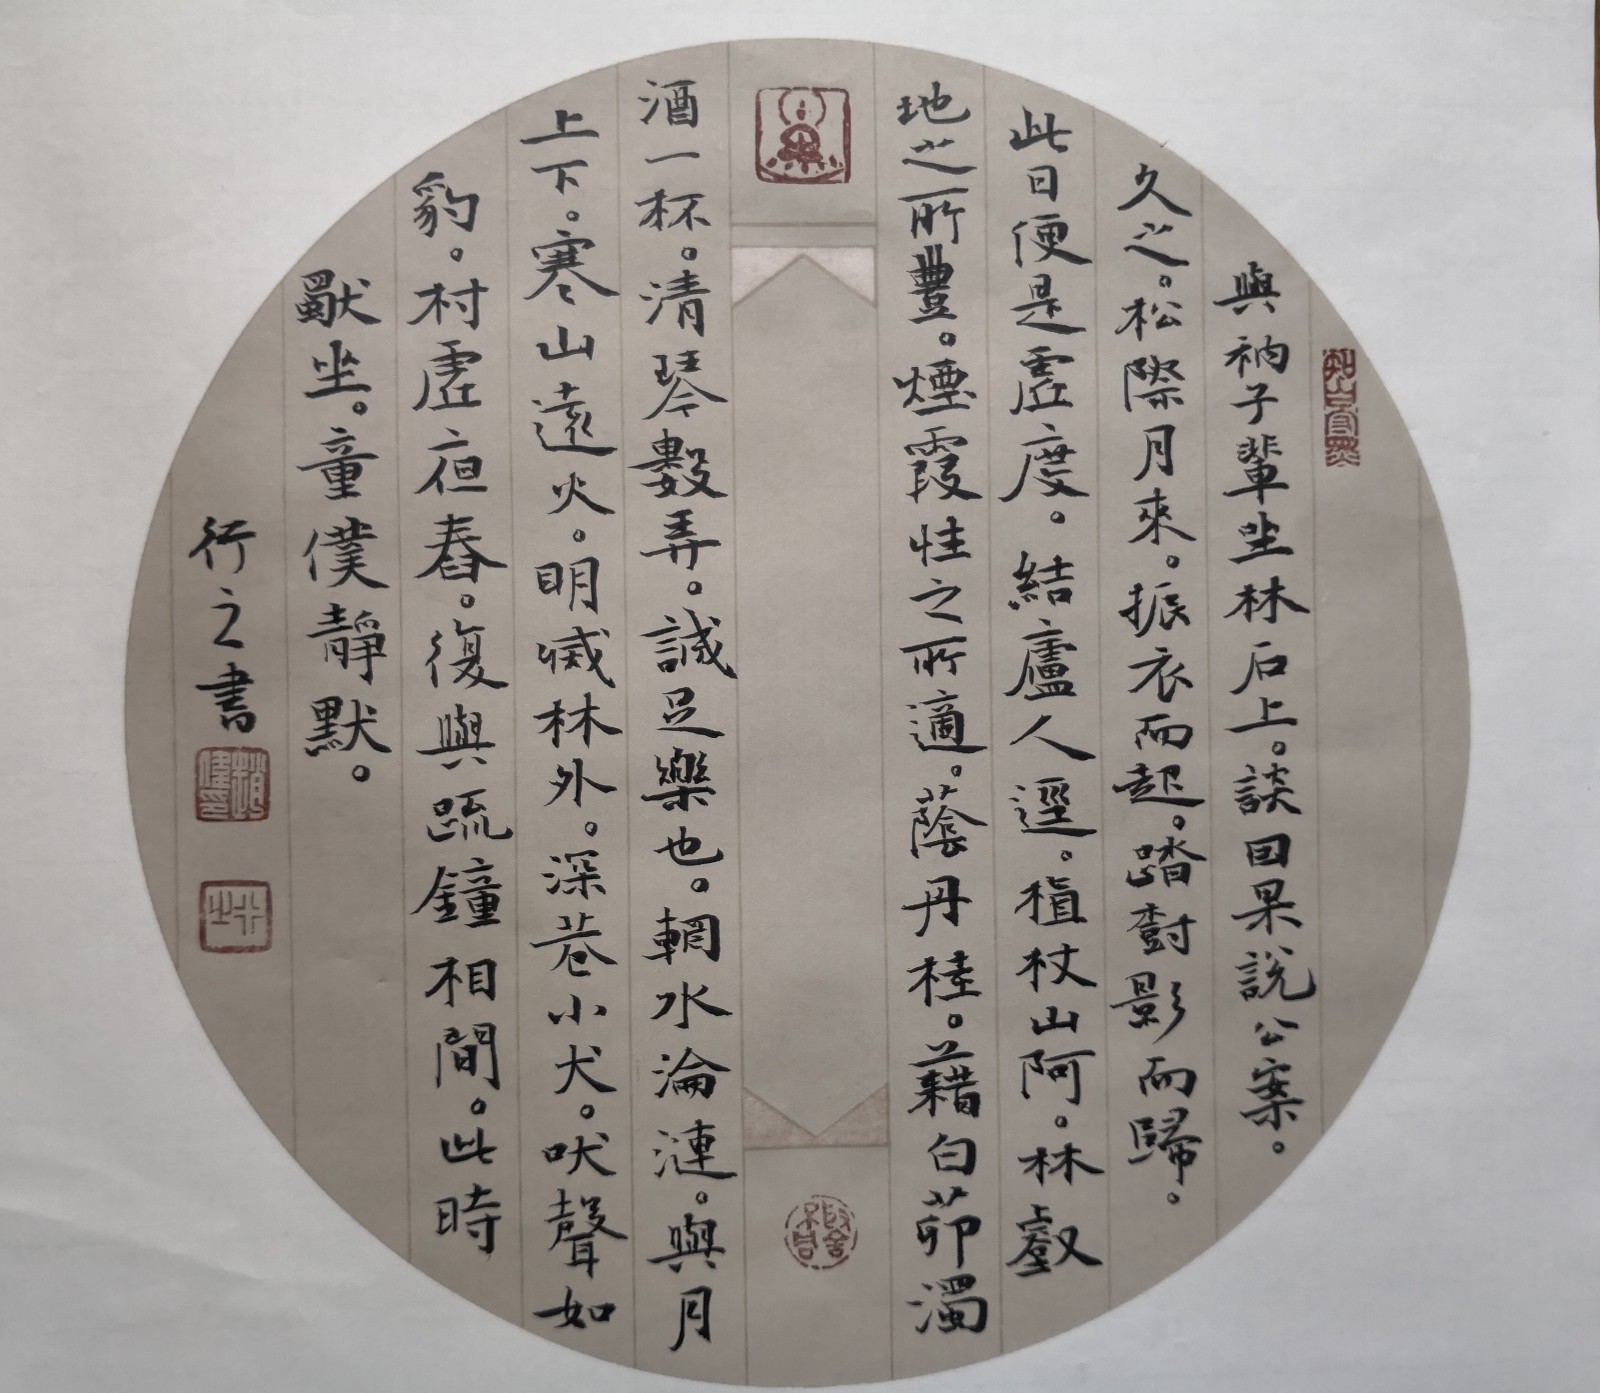 與衲子輩坐林石上。談囙果說公案。
久之。松際月來。振衣而起。踏樹影而歸。
此日便是虛度。結廬人逕。植杖山阿。林壑
地之所豐。煙霞性之所適。蔭丹桂。藉白茆濁
酒一杯。清琴數弄。誠足樂也。輞水淪漣。與月
上下。寒山遠火。明滅林外。深巷小犬。吠聲如
豹。村虛夜舂。復與疏鐘相間。此時
獨坐。童僕靜默。
行之書
行之